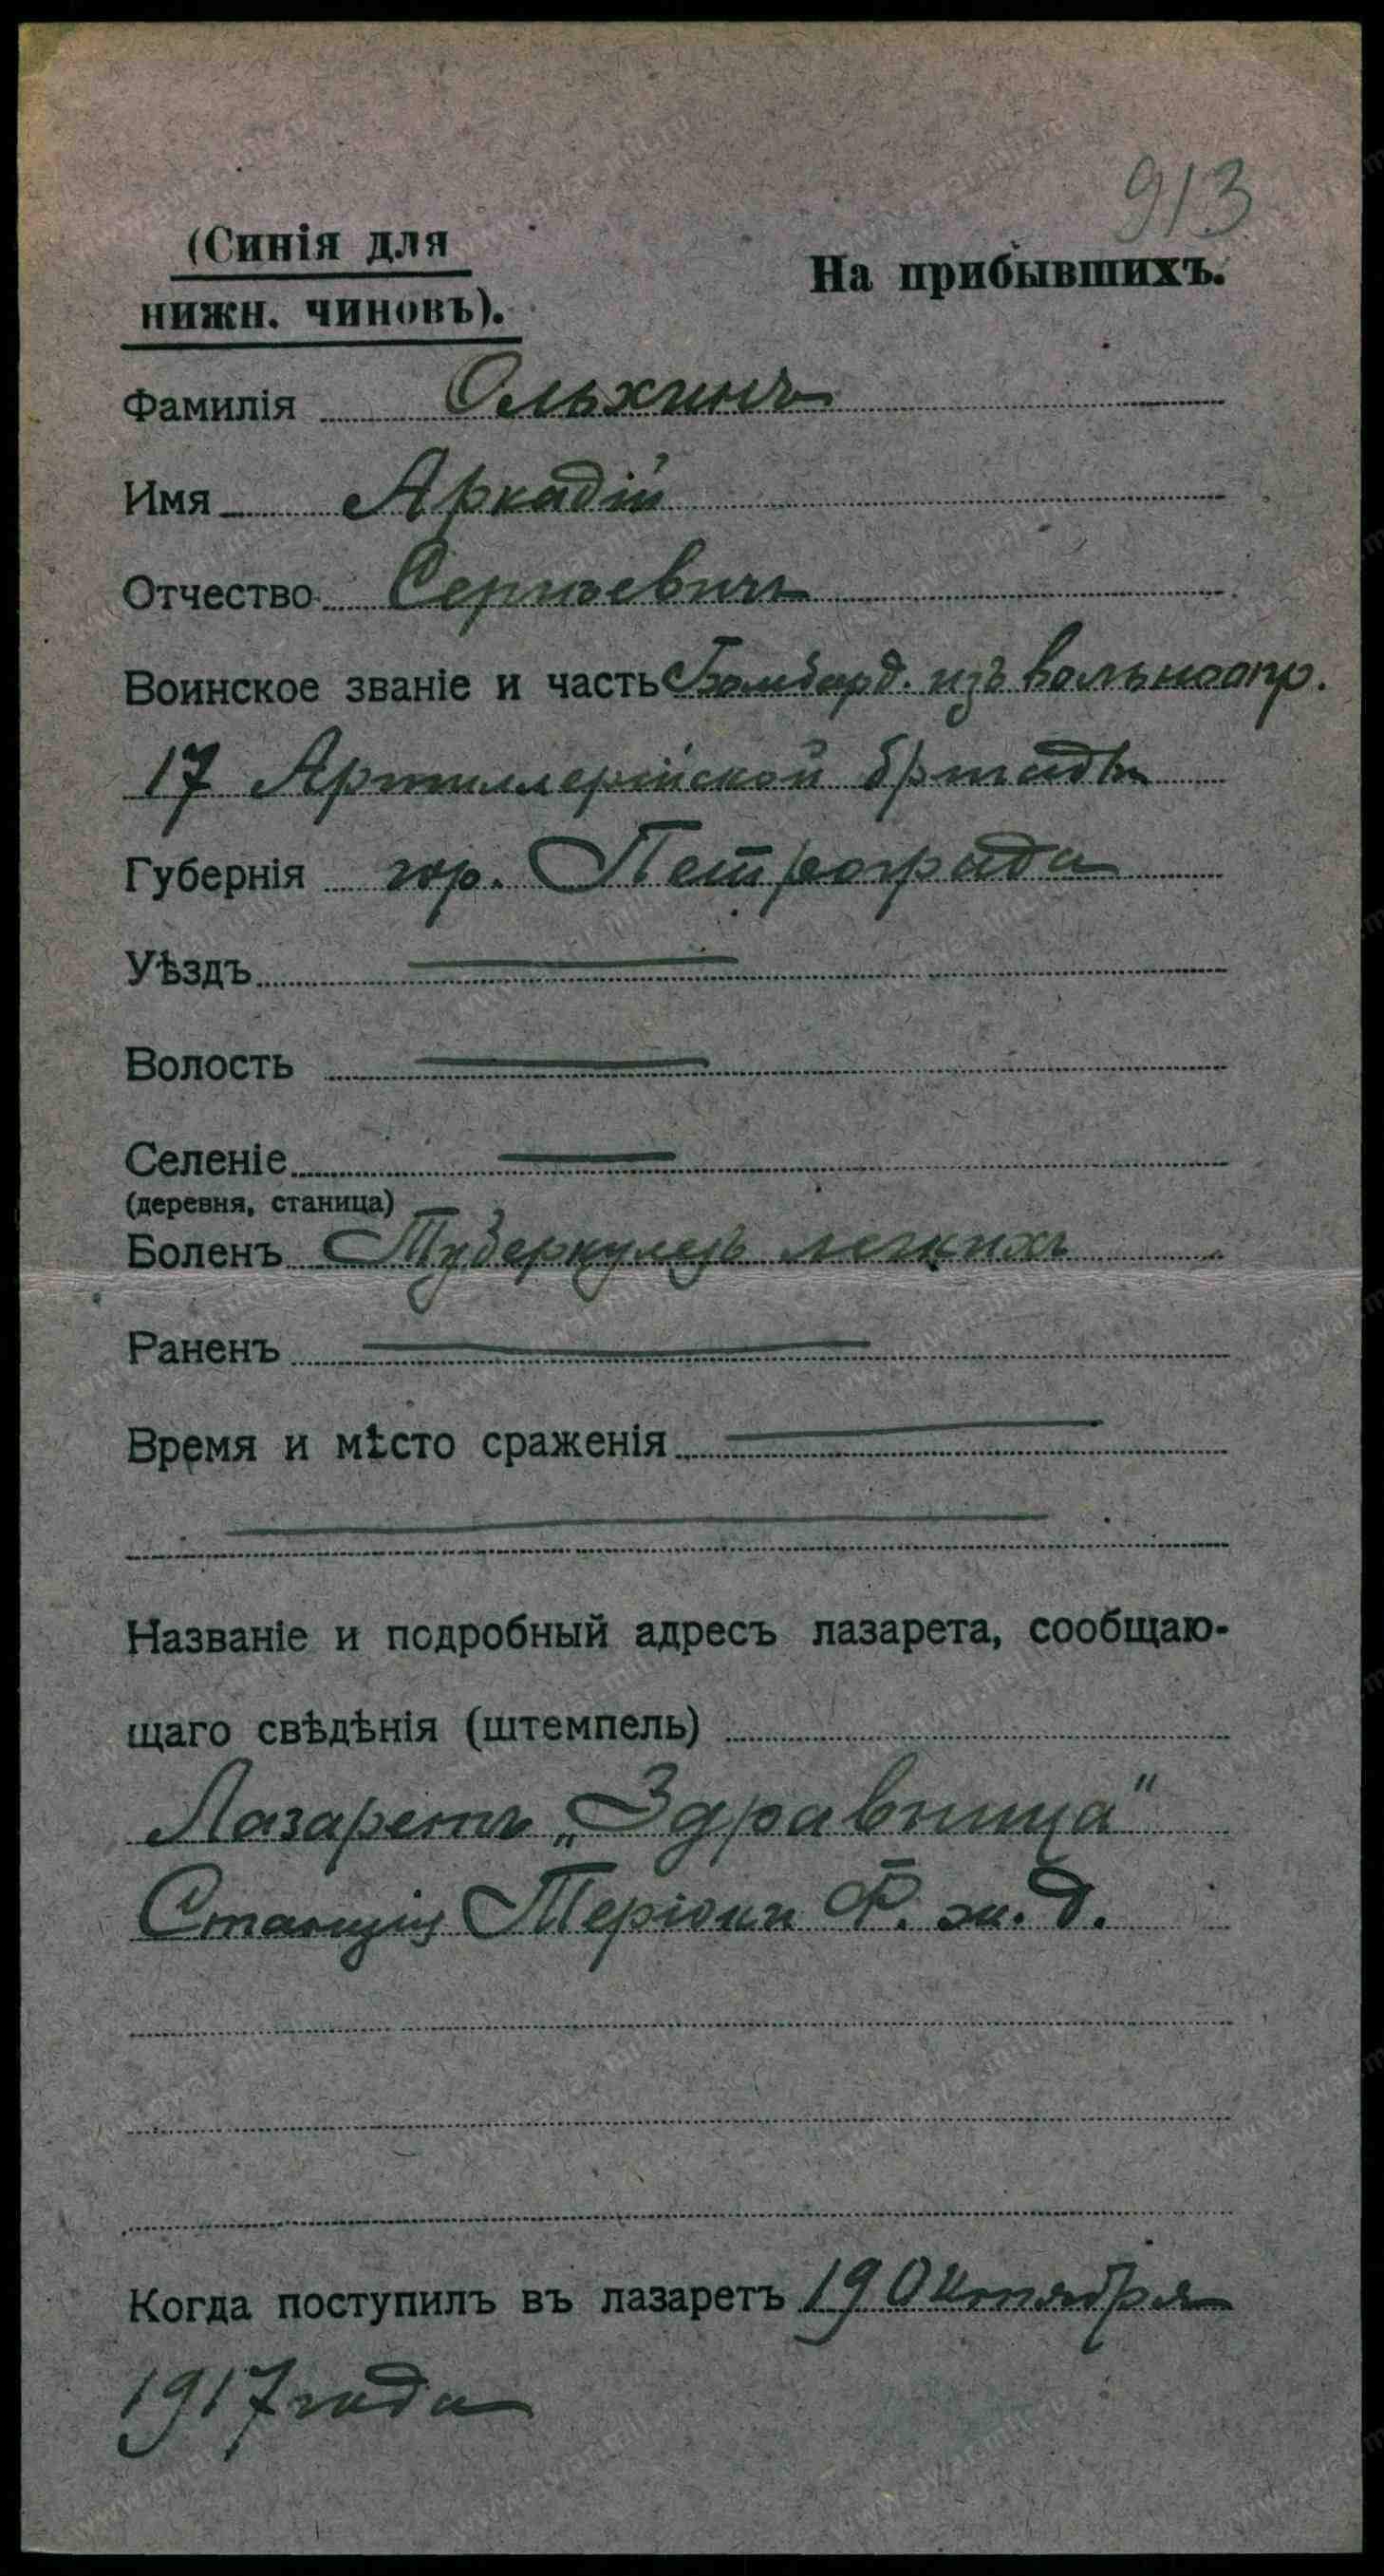 913
(Синія для
нижн. чиновъ).
На прибывшихъ.
Фамилія Ольхинъ
Имя Аркадій
Отчество Сергѣевичъ
Воинское званіе и часть Бомбард. изъ вольноопр.
17 Артиллерійской бригады
Губернія гор. Петрограда
Уѣздъ
Волость
Селеніе
(деревня, станица)
Боленъ Туберкулезъ легкихъ
Раненъ
Время и мѣсто сраженія
Названіе и подробный адресъ лазарета, сообщаю-
щаго свѣдѣнія (штемпель)
Лазаретъ „Здравница"
Станція Теріоки Ф. ж. д.
Когда поступилъ въ лазаретъ 19 Октября
1917 года